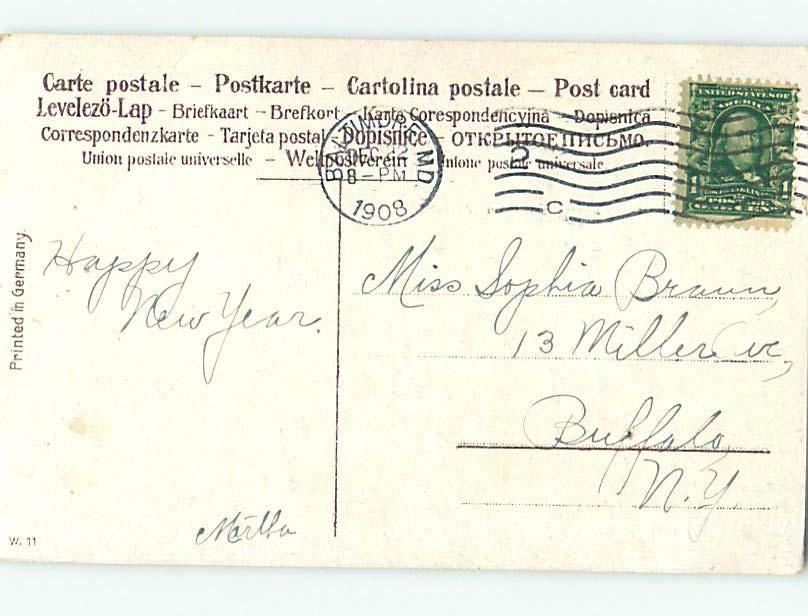 Carte postale – Postkarte – Cartolina postale – Post card
Levelezö-Lap - Briefkaart - Brefkort - Karta Corespondencyjna - Dopisnica
Correspondenzkarte - Tarjeta postal - Dopisnice - ОТКРЫТОЕ ПИСЬМО.
Union postale universelle - Weltpostverein - Unione postale universale.
BALTIMORE MD
DEC
8-PM
1908
C
AMERICA
1
Printed in Germany.
Happy
New Year.
Martha
W. 11
Miss Sophia Braun,
13 Miller Ave,
Buffalo,
N.Y.